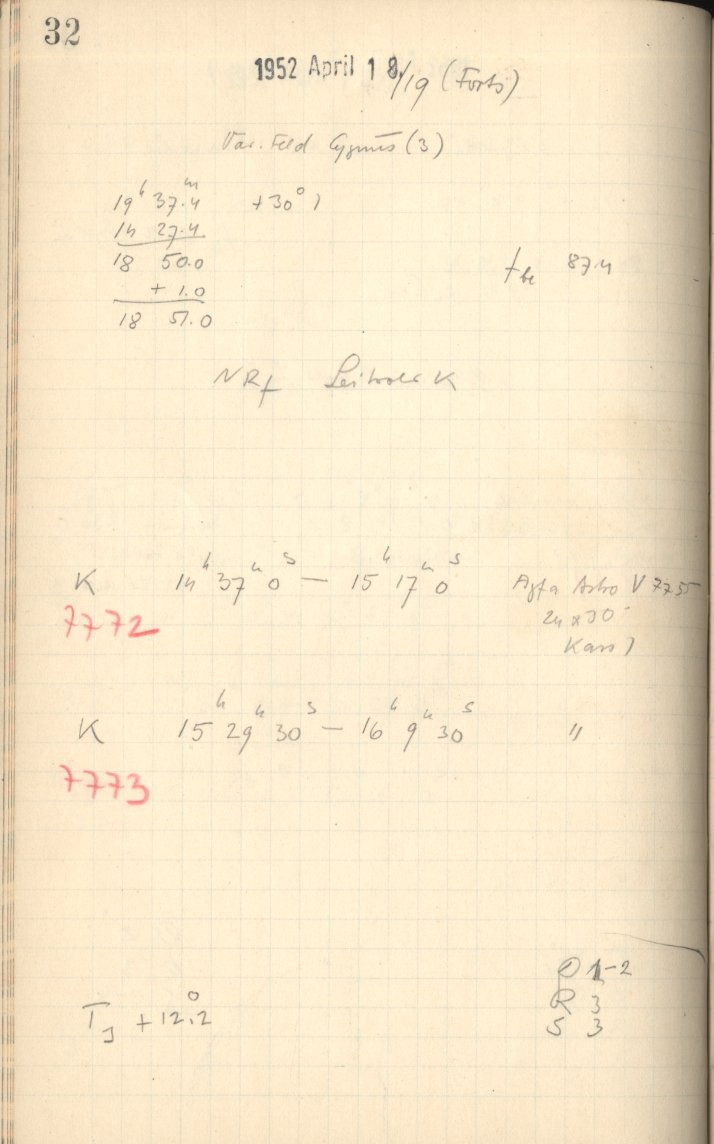 32
1952 April 18./19 (Forts)
Var. Feld Cygnus (3)
19h 37.4m +30° 1
14 27.4
18 50.0
tbe 87.4
+ 1.0
18 51.0
NRf K
K 14h 37m 0s — 15h 17m 0s Agfa Astro V 7755
7772
24 x 30
Kass 1
K 15h 29m 30s — 16h 9m 30s "
7773
D 1-2
R 3
S 3
TJ +12.°2